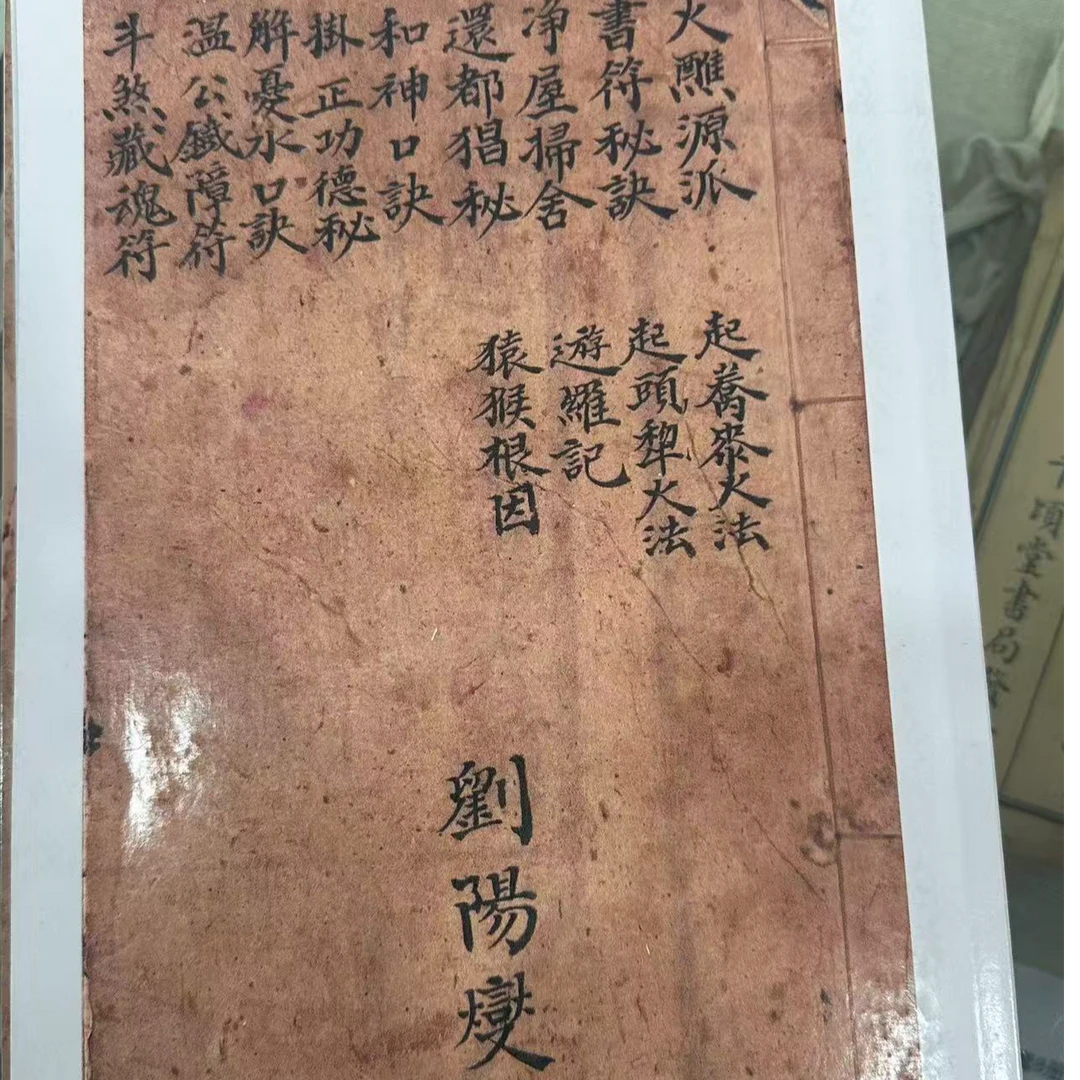 火醮源派
書符秘訣
净屋掃舍
還都猖秘
和神口訣
掛正功德秘
解憂水口訣
溫公鐵障符
斗煞藏魂符
起蕎麥火法
起頭犂火法
遊羅記
猿猴根因
劉陽燮
頂堂書局發